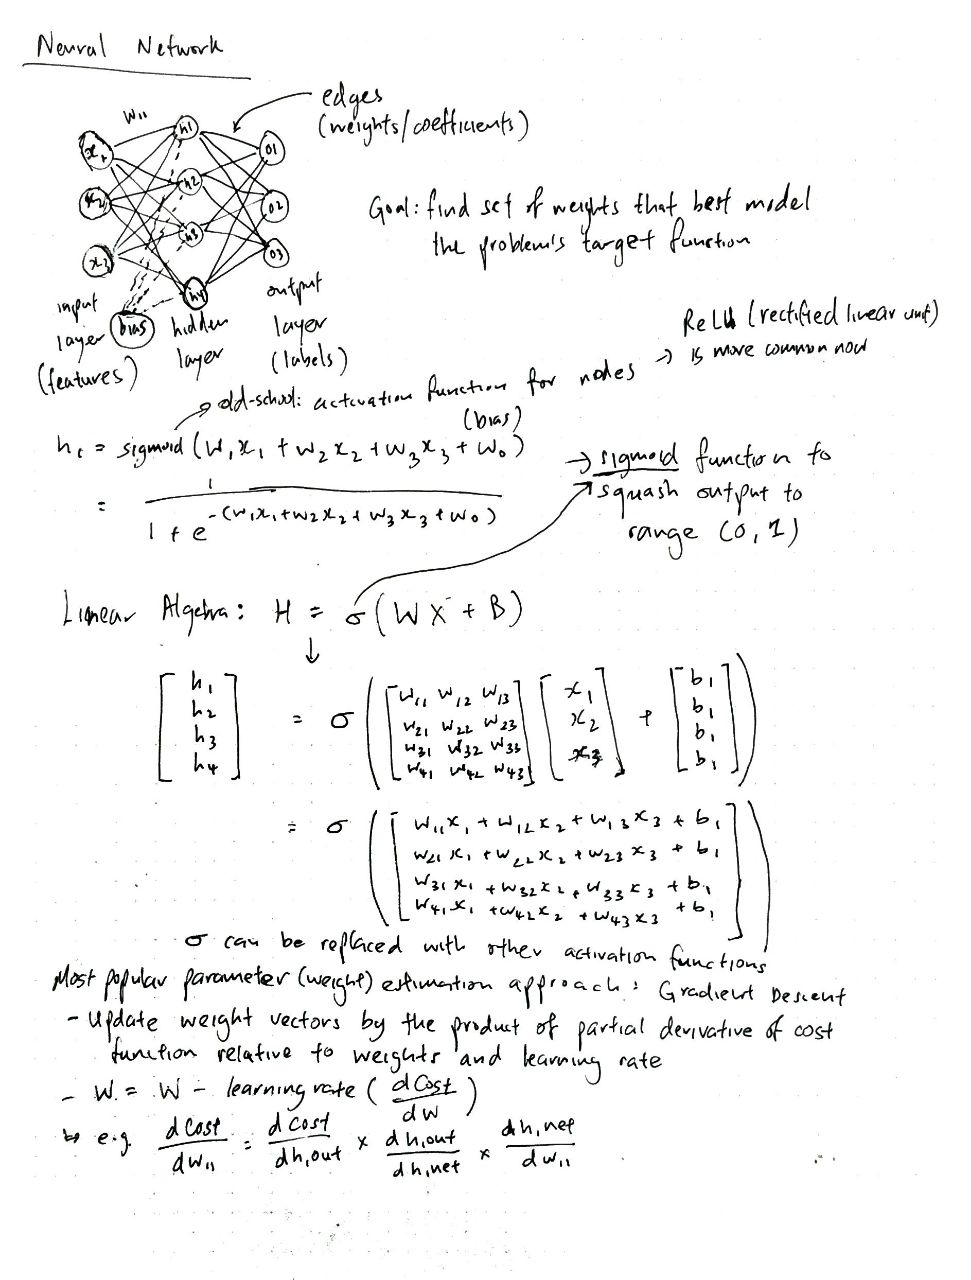 Neural Network
edges
(weights/coefficients)
w₁₁
x₁ h1 o1
x₂ h2 o2
x₃ h3 o3
h4
bias
Goal: find set of weights that best model
the problem's target function
input
layer
(features)
hidden
layer
output
layer
(labels)
ReLU (rectified linear unit)
is more common now
old-school: activation function for nodes →
(bias)
h₁ = sigmoid (w₁x₁ + w₂x₂ + w₃x₃ + w₀)
= 1 / (1 + e^-(w₁x₁+w₂x₂+w₃x₃+w₀))
→ sigmoid function to
squash output to
range (0, 1)
Linear Algebra: H = σ(WX + B)
↓
[h₁ h₂ h₃ h₄] = σ([w₁₁ w₁₂ w₁₃
w₂₁ w₂₂ w₂₃
w₃₁ w₃₂ w₃₃
w₄₁ w₄₂ w₄₃] [x₁ x₂ x₃] + [b₁ b₁ b₁ b₁])
= σ([w₁₁x₁ + w₁₂x₂ + w₁₃x₃ + b₁
w₂₁x₁ + w₂₂x₂ + w₂₃x₃ + b₁
w₃₁x₁ + w₃₂x₂ + w₃₃x₃ + b₁
w₄₁x₁ + w₄₂x₂ + w₄₃x₃ + b₁])
σ can be replaced with other activation functions
Most popular parameter (weight) estimation approach: Gradient Descent
- Update weight vectors by the product of partial derivative of cost
function relative to weights and learning rate
- W = W - learning rate (dCost/dW)
↳ e.g. dCost/dw₁₁ = dCost/dh₁out × dh₁out/dh₁net × dh₁net/dw₁₁